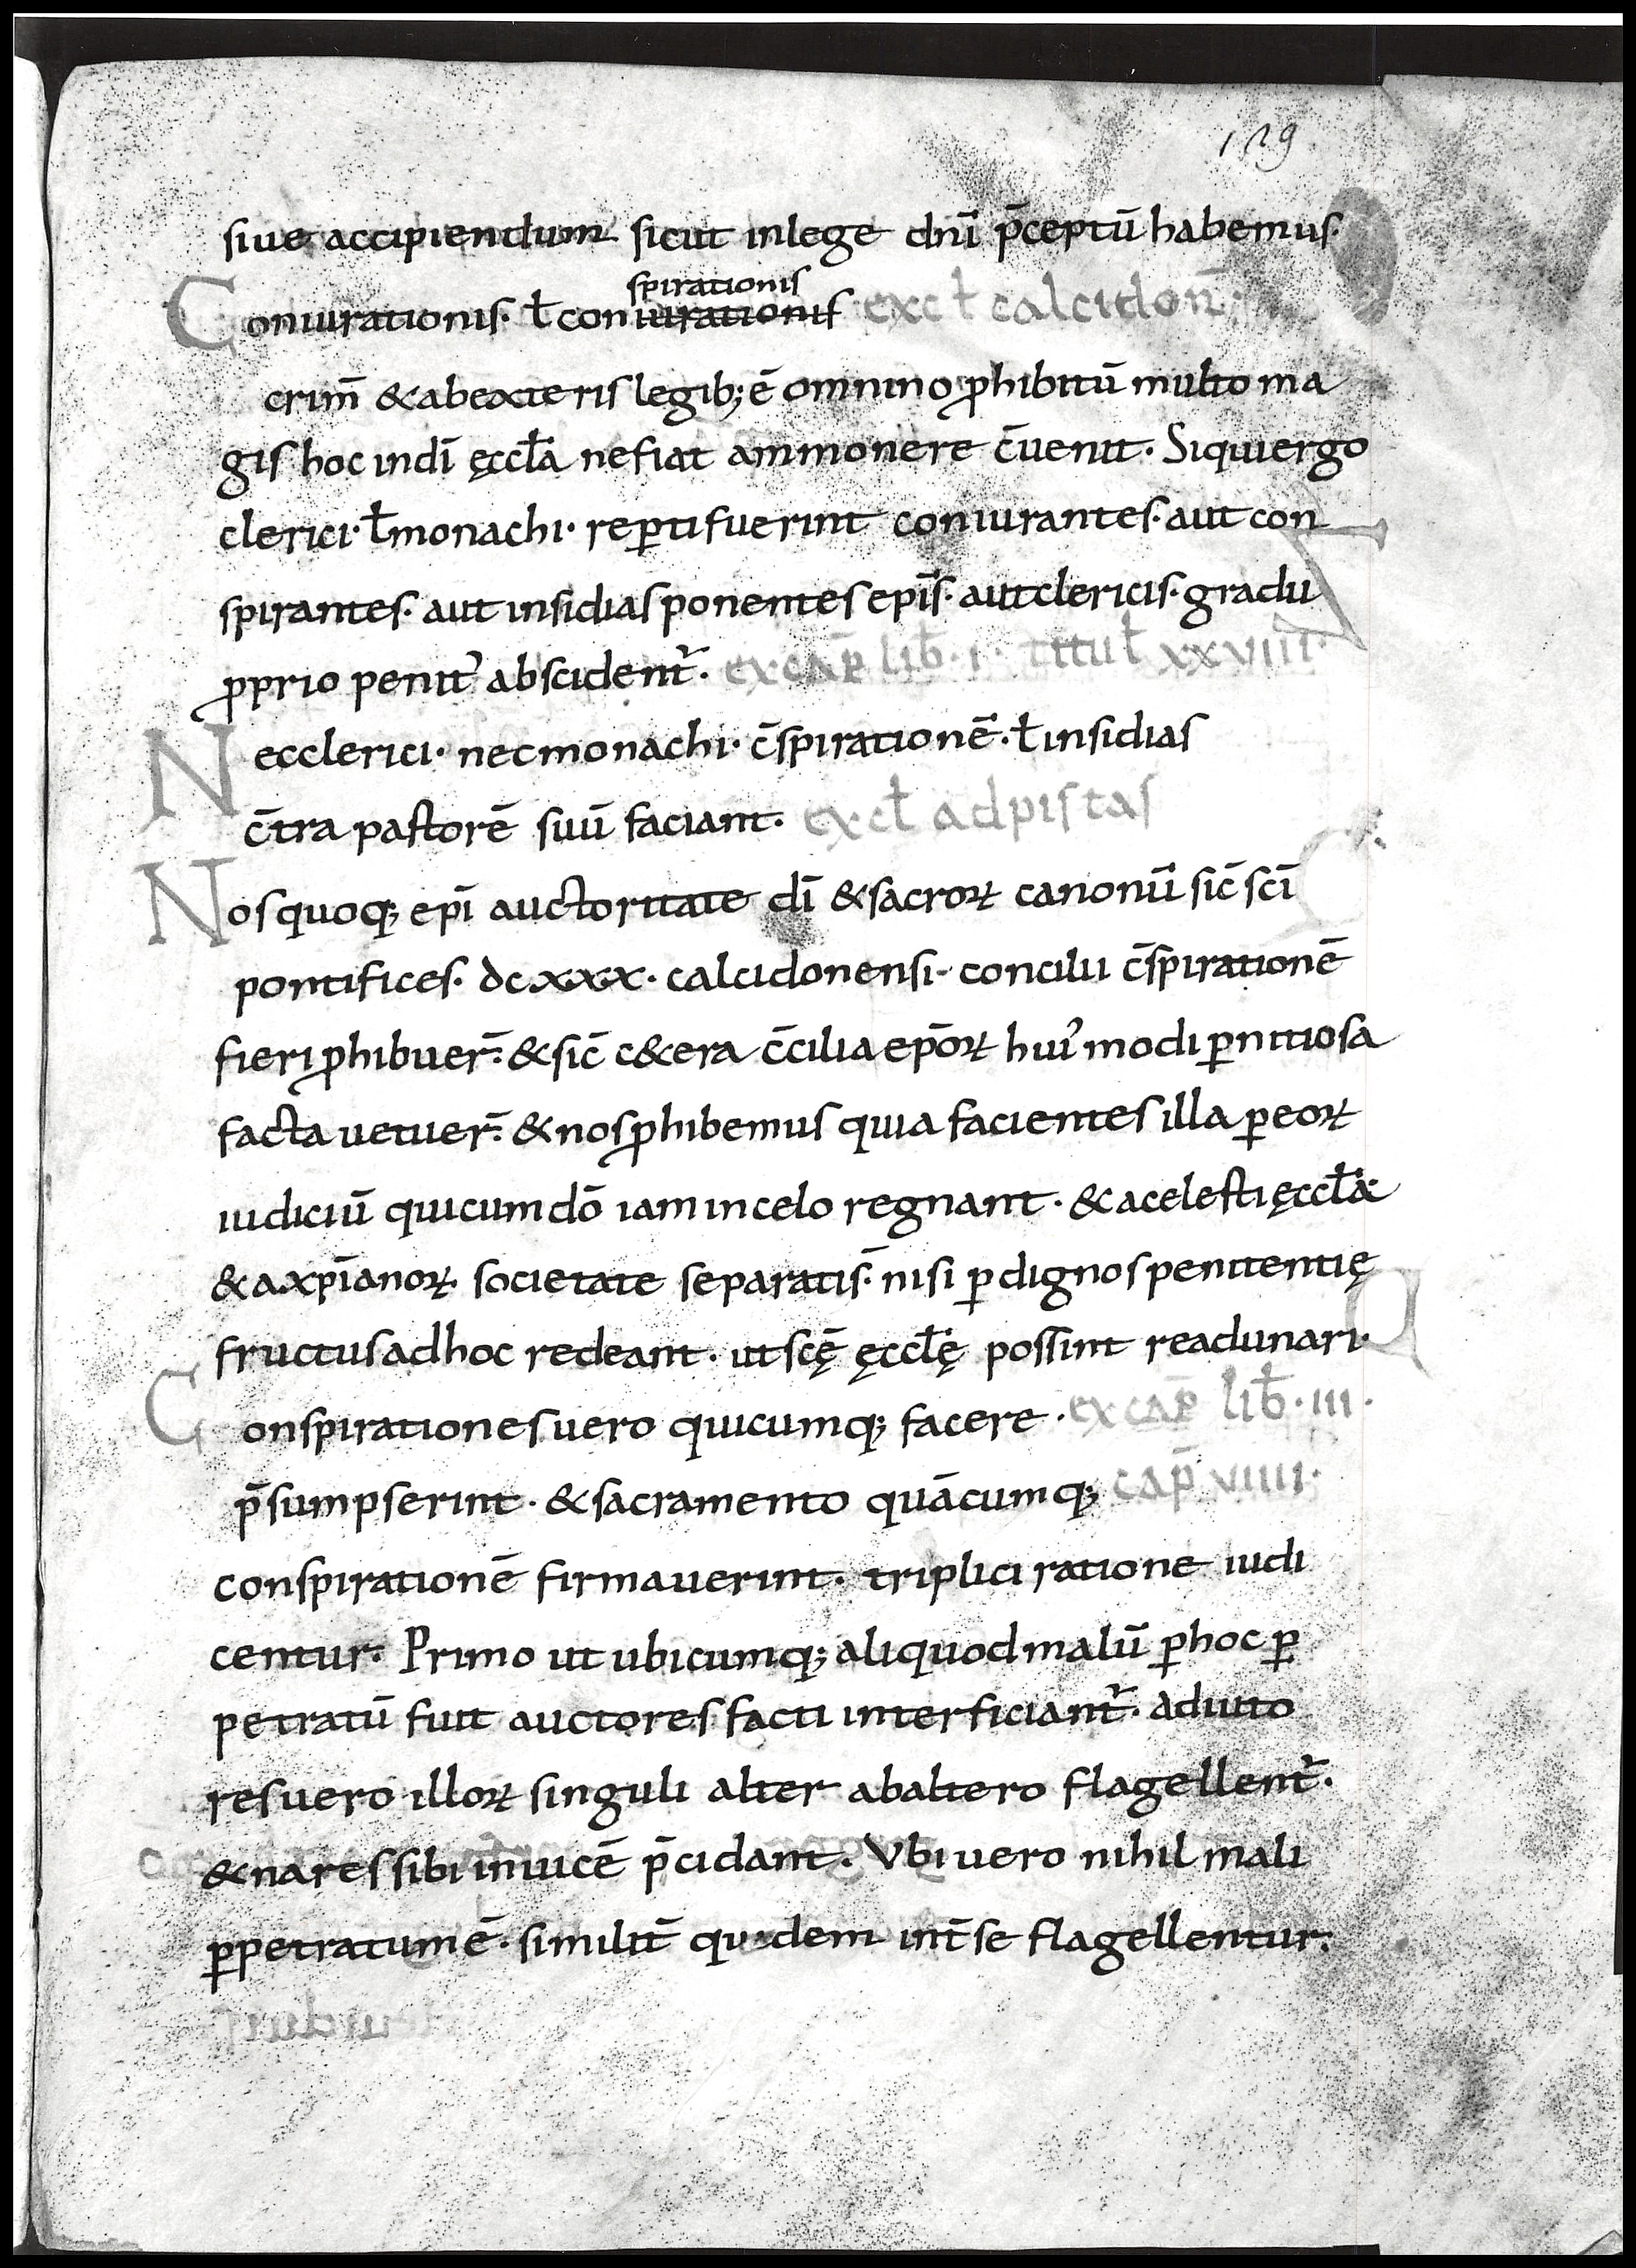 129
siue accipiendum sicut inlege dnī p̄ceptū habemus·
spirationis
Coniurationis· ł coniurationis exc ł calcidon̄·
crim̄ & abexteris legib; ē omnino ꝓhibitū multo ma
gis hoc indī ęccła nefiat ammonere c̄uenit· Siquiergo
clerici· ł monachi· reꝑti fuerint coniurantes· aut con
spirantes· aut insidias ponentes epīs· aut clericis· gradu
ꝓprio penit᾽ abscident᷑· ex cap̄ lib̄· i· titul̄ xxviiii·
Necclerici· necmonachi· c̄spirationē· ł insidias
c̄tra pastorē suū faciant· excł adpistas
Nos quoq; epī auctoritate dī & sacroꝝ canonū sic̄ scī
pontifices· dcxxx· calcidonensi· concilii c̄spirationē
fieri ꝓhibuer̄· & sic̄ c&era c̄cilia epōꝝ hui᾽modi ꝑnitiosa
facta uetuer̄· & nos ꝓhibemus quia facientes illa ꝑ eoꝝ
iudiciū quicum dō iam incelo regnant· & acelesti ęccła
& axp̄ianoꝝ societate separatis· nisi ꝑ dignos penitentię
fructus adhoc redeant· ut scę̄ ęccłę possint readunari·
Conspirationes uero quicumq; facere· ex cap̄ lib̄· iii·
p̄sumpserint· & sacramento quācumq; cap̄ viiii·
conspirationē firmauerint· triplici ratione iudi
centur· Primo ut ubicumq; aliquod malū ꝑ hoc ꝑ
petratū fuit auctores facti interficiant᷑· adiuto
res uero illoꝝ singuli alter abaltero flagellent᷑·
& nares sibi inuicē p̄cidant· Vbi uero nihil mali
ꝑpetratum ē· similit̄ quidem int̄ se flagellentur·